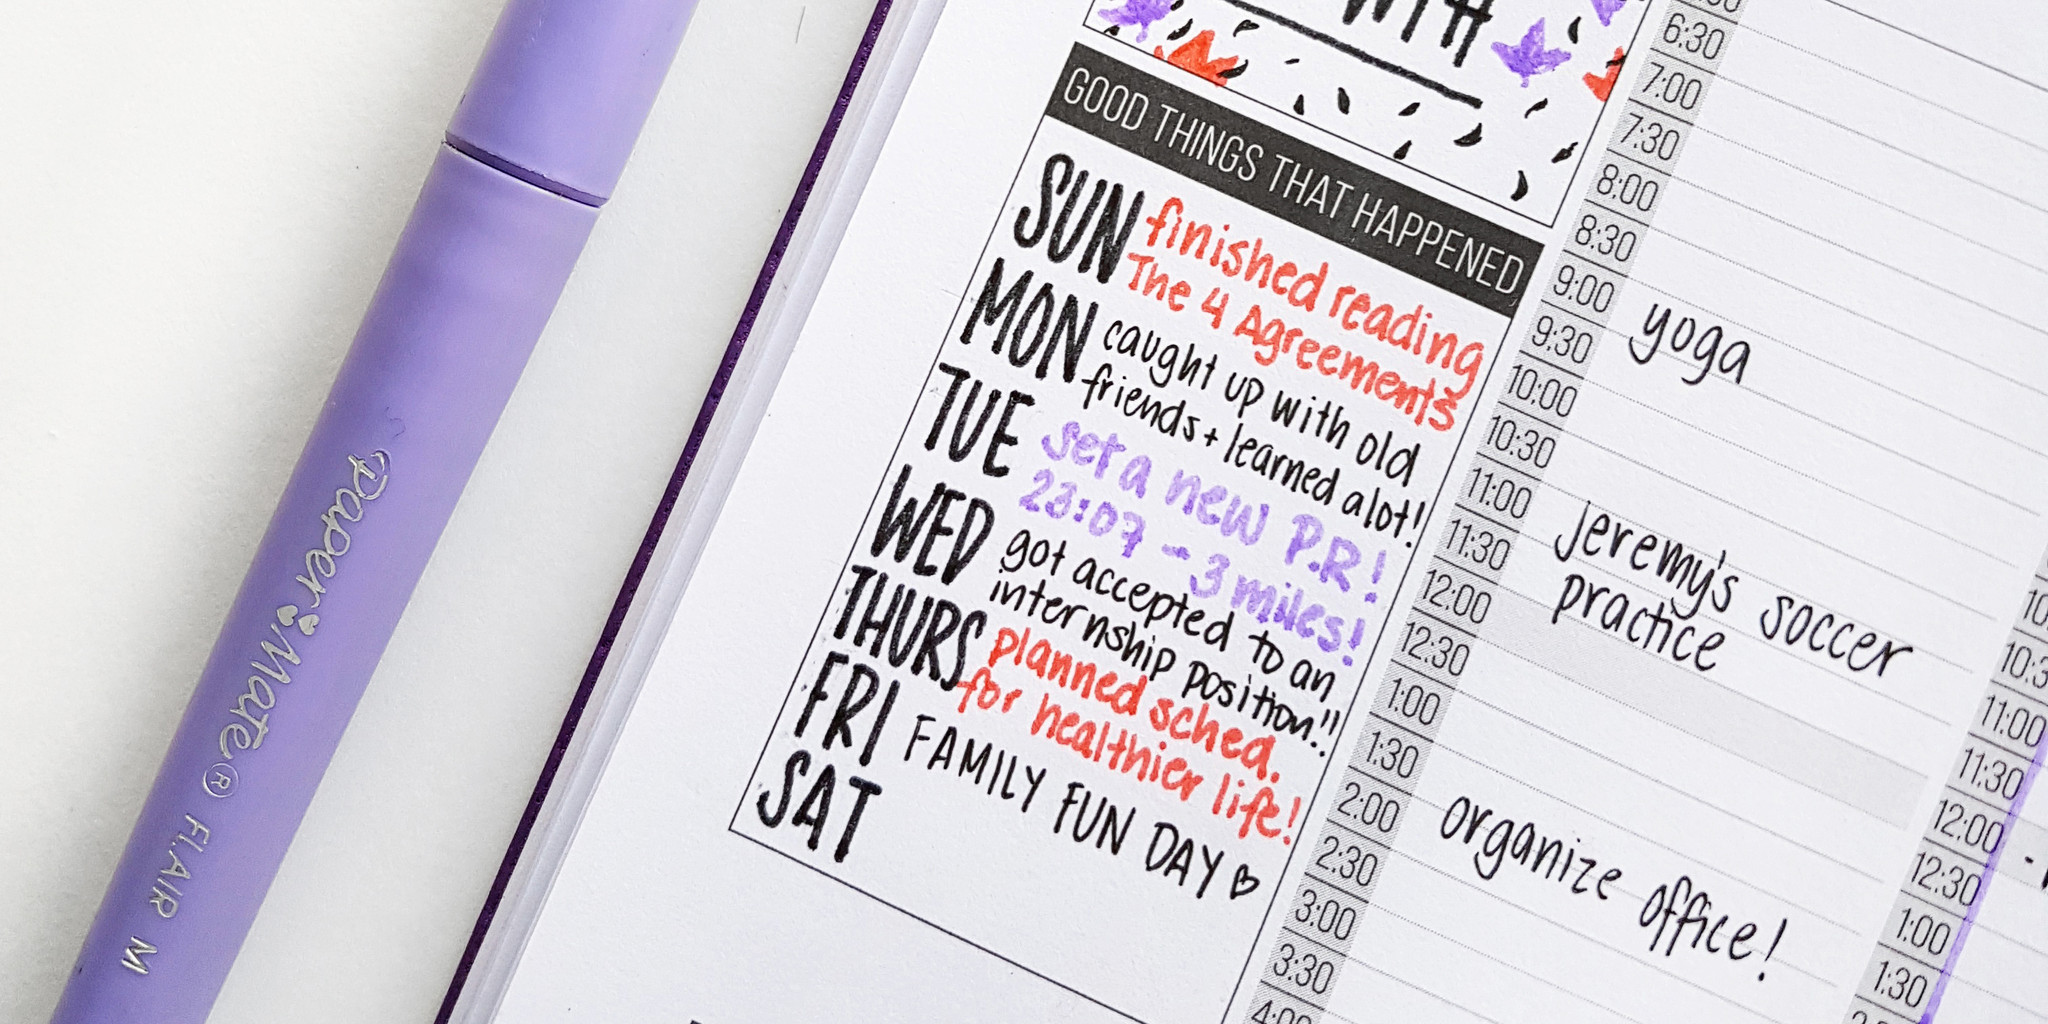 Paper Mate® FLAIR M
WITH
GOOD THINGS THAT HAPPENED
SUN finished reading
The 4 Agreements
MON caught up with old
friends + learned alot!
TUE set a new P.R!
23:07 - 3 miles!
WED got accepted to an
internship position!!
THURS planned sched.
for healthier life!
FRI FAMILY FUN DAY
SAT
6:30
7:00
7:30
8:00
8:30
9:00 yoga
9:30
10:00
10:30
11:00 jeremy's soccer
11:30 practice
12:00
12:30
1:00
1:30
2:00 organize office!
2:30
3:00
3:30
4:00
11:00
11:30
12:00
12:30
1:00
1:30